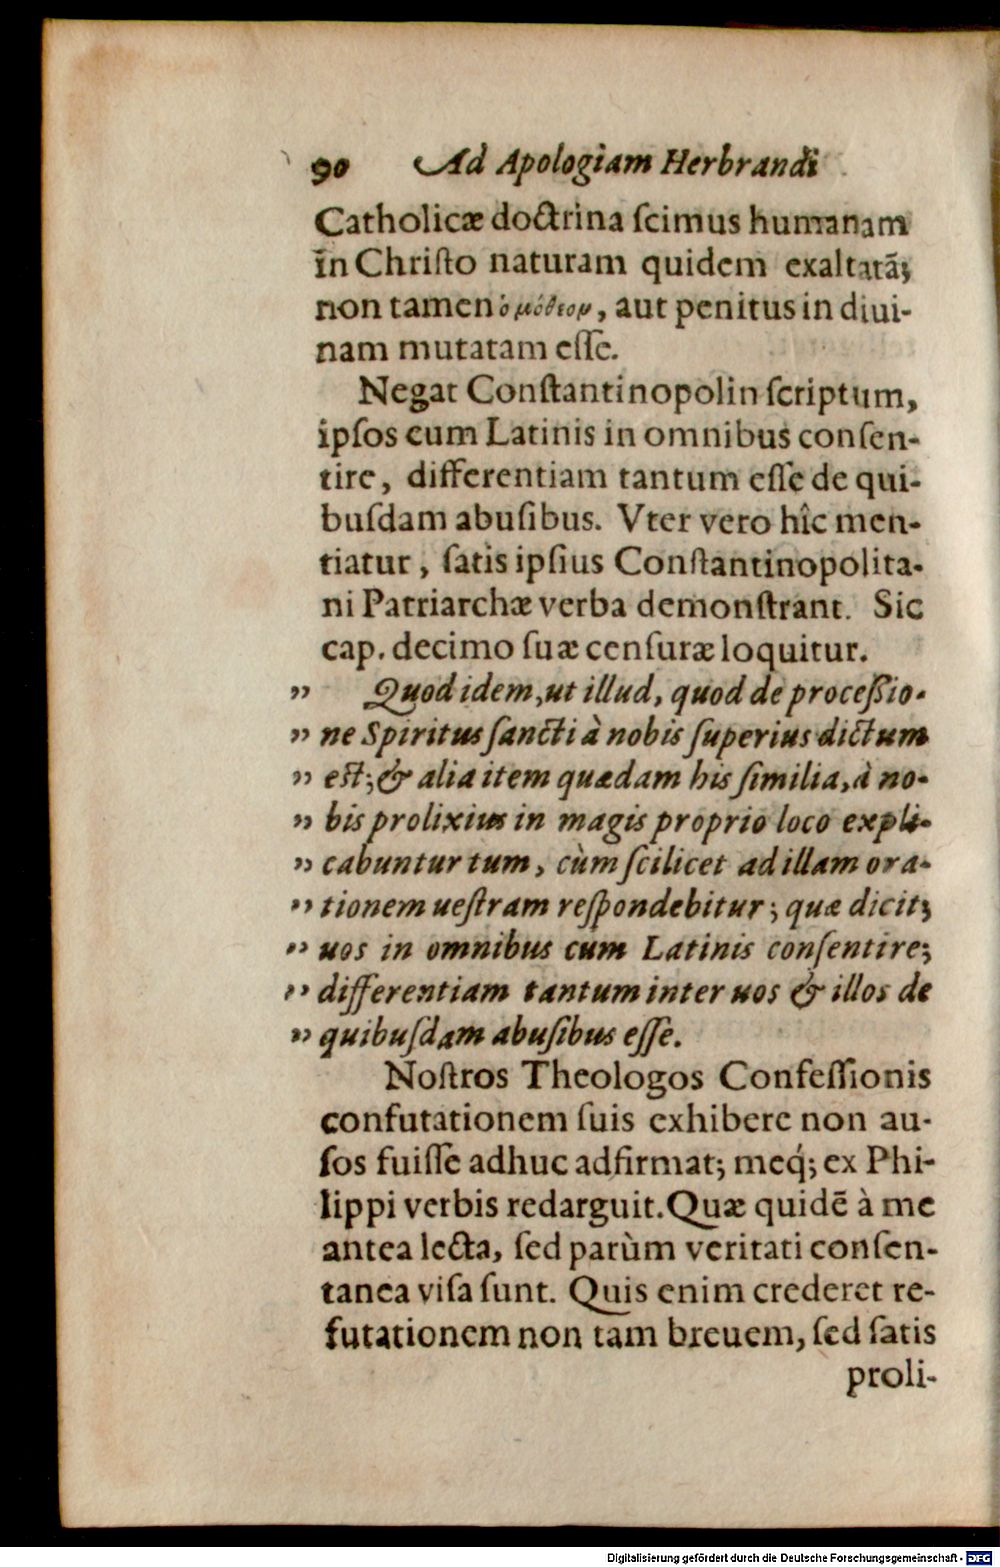 90 Ad Apologiam Herbrandi
Catholicæ doctrina ſcimus humanam
in Chriſto naturam quidem exaltatã;
non tamen ὁμόθεον, aut penitus in diui-
nam mutatam eſſe.
Negat Conſtantinopolin ſcriptum,
ipſos cum Latinis in omnibus conſen-
tire, differentiam tantum eſſe de qui-
buſdam abuſibus. Vter vero hîc men-
tiatur, ſatis ipſius Conſtantinopolita-
ni Patriarchæ verba demonſtrant. Sic
cap. decimo ſuæ cenſuræ loquitur.
" Quod idem, ut illud, quod de proceſsio-
" ne Spiritus ſancti à nobis ſuperius dictum
" eſt; & alia item quædam his ſimilia, à no-
" bis prolixius in magis proprio loco expli-
" cabuntur tum, cùm ſcilicet ad illam ora-
" tionem ueſtram reſpondebitur; quæ dicit;
" uos in omnibus cum Latinis conſentire;
" differentiam tantum inter uos & illos de
" quibuſdam abuſibus eſſe.
Noſtros Theologos Confeſſionis
confutationem ſuis exhibere non au-
ſos fuiſſe adhuc adfirmat; meq́; ex Phi-
lippi verbis redarguit. Quæ quidẽ à me
antea lecta, ſed parùm veritati conſen-
tanea viſa ſunt. Quis enim crederet re-
futationem non tam breuem, ſed ſatis
proli-
Digitalisierung gefördert durch die Deutsche Forschungsgemeinschaft - DFG